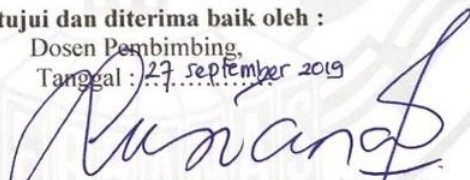 tujui dan diterima baik oleh :
Dosen Pembimbing,
Tanggal : 27 september 2019